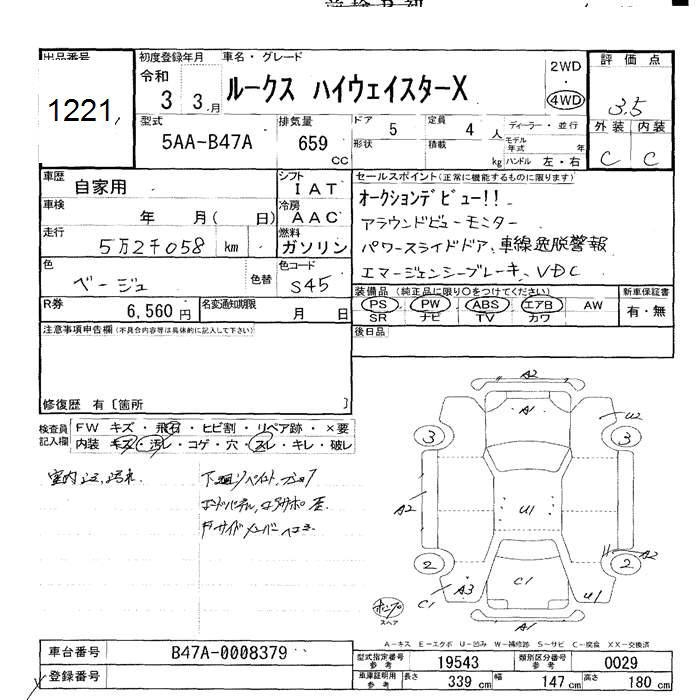 出品番号 初度登録年月 車名・グレード 評価点
1221 令和 3 3.月 ルークス ハイウェイスターX 2WD・4WD 3.5
外装 内装
C C
型式 排気量 ドア 5 定員 4人 ディーラー・並行
5AA-B47A 659 CC 形状 積載 kg モデル年式 年 ハンドル 左・右
車歴 自家用 シフト IAT セールスポイント(正常に機能するものに限ります)
車検 年 月( 日) 冷房 AAC オークションデビュー!!
アラウンドビューモニター
走行 5万2千058 km 燃料 ガソリン パワースライドドア、車線逸脱警報
色 ベージュ 色替 色コード S45 エマージェンシーブレーキ、VDC
R券 6,560円 名変通知期限 月 日 装備品(純正品に限り○をつけてください) 新車保証書
PS PW ABS エアB AW 有・無
SR ナビ TV カワ
注意事項申告欄(不具合内容等は具体的に記入して下さい) 後日品
修復歴 有〔箇所 〕
検査員記入欄 FW キズ・飛石・ヒビ割・リペア跡・×要
内装 キズ・汚レ・コゲ・穴・スレ・キレ・破レ
室内 汚れ
A2
A1
U2
3 3
A2
U1
2 2
A2
A3 C1
C1 U1
A1
スペア
A-キス E-エクボ U-凹み W-補修跡 S-サビ C-腐食 XX-交換済
車台番号 B47A-0008379 型式指定番号 参考 19543 類別区分番号 参考 0029
登録番号 車庫証明用 参考 長さ 339 cm 幅 147 cm 高さ 180 cm